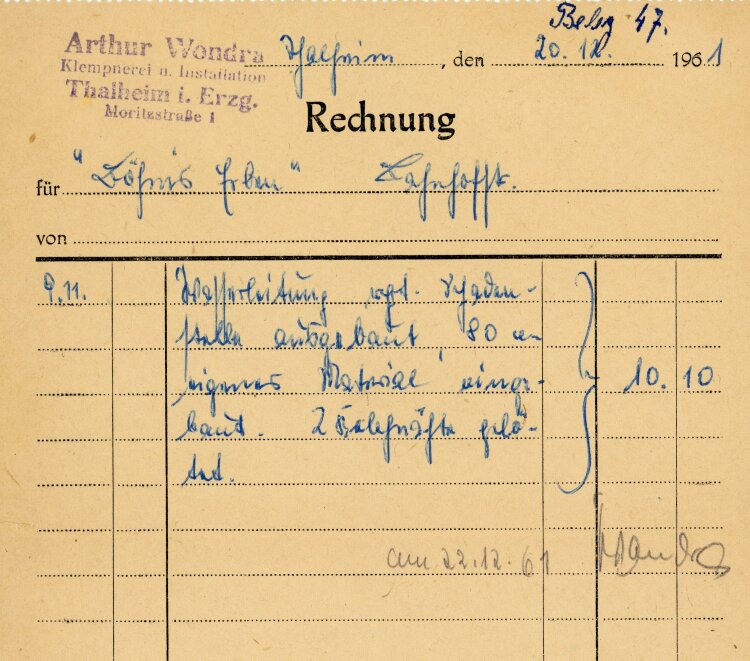 Beleg 47.
Arthur Wondra
Klempnerei u. Installation
Thalheim i. Erzg.
Moritzstraße 1
Thalheim, den 20. 12. 1961
Rechnung
für "Böhm's Erben" Bahnhofst.
von
9.11. Wasserleitung rep. Schaden-
stelle ausgebaut, 80 cm
eigenes Material einge- 10.10
baut. 2 gelö-
tet.
am 22.12.61 Wondra